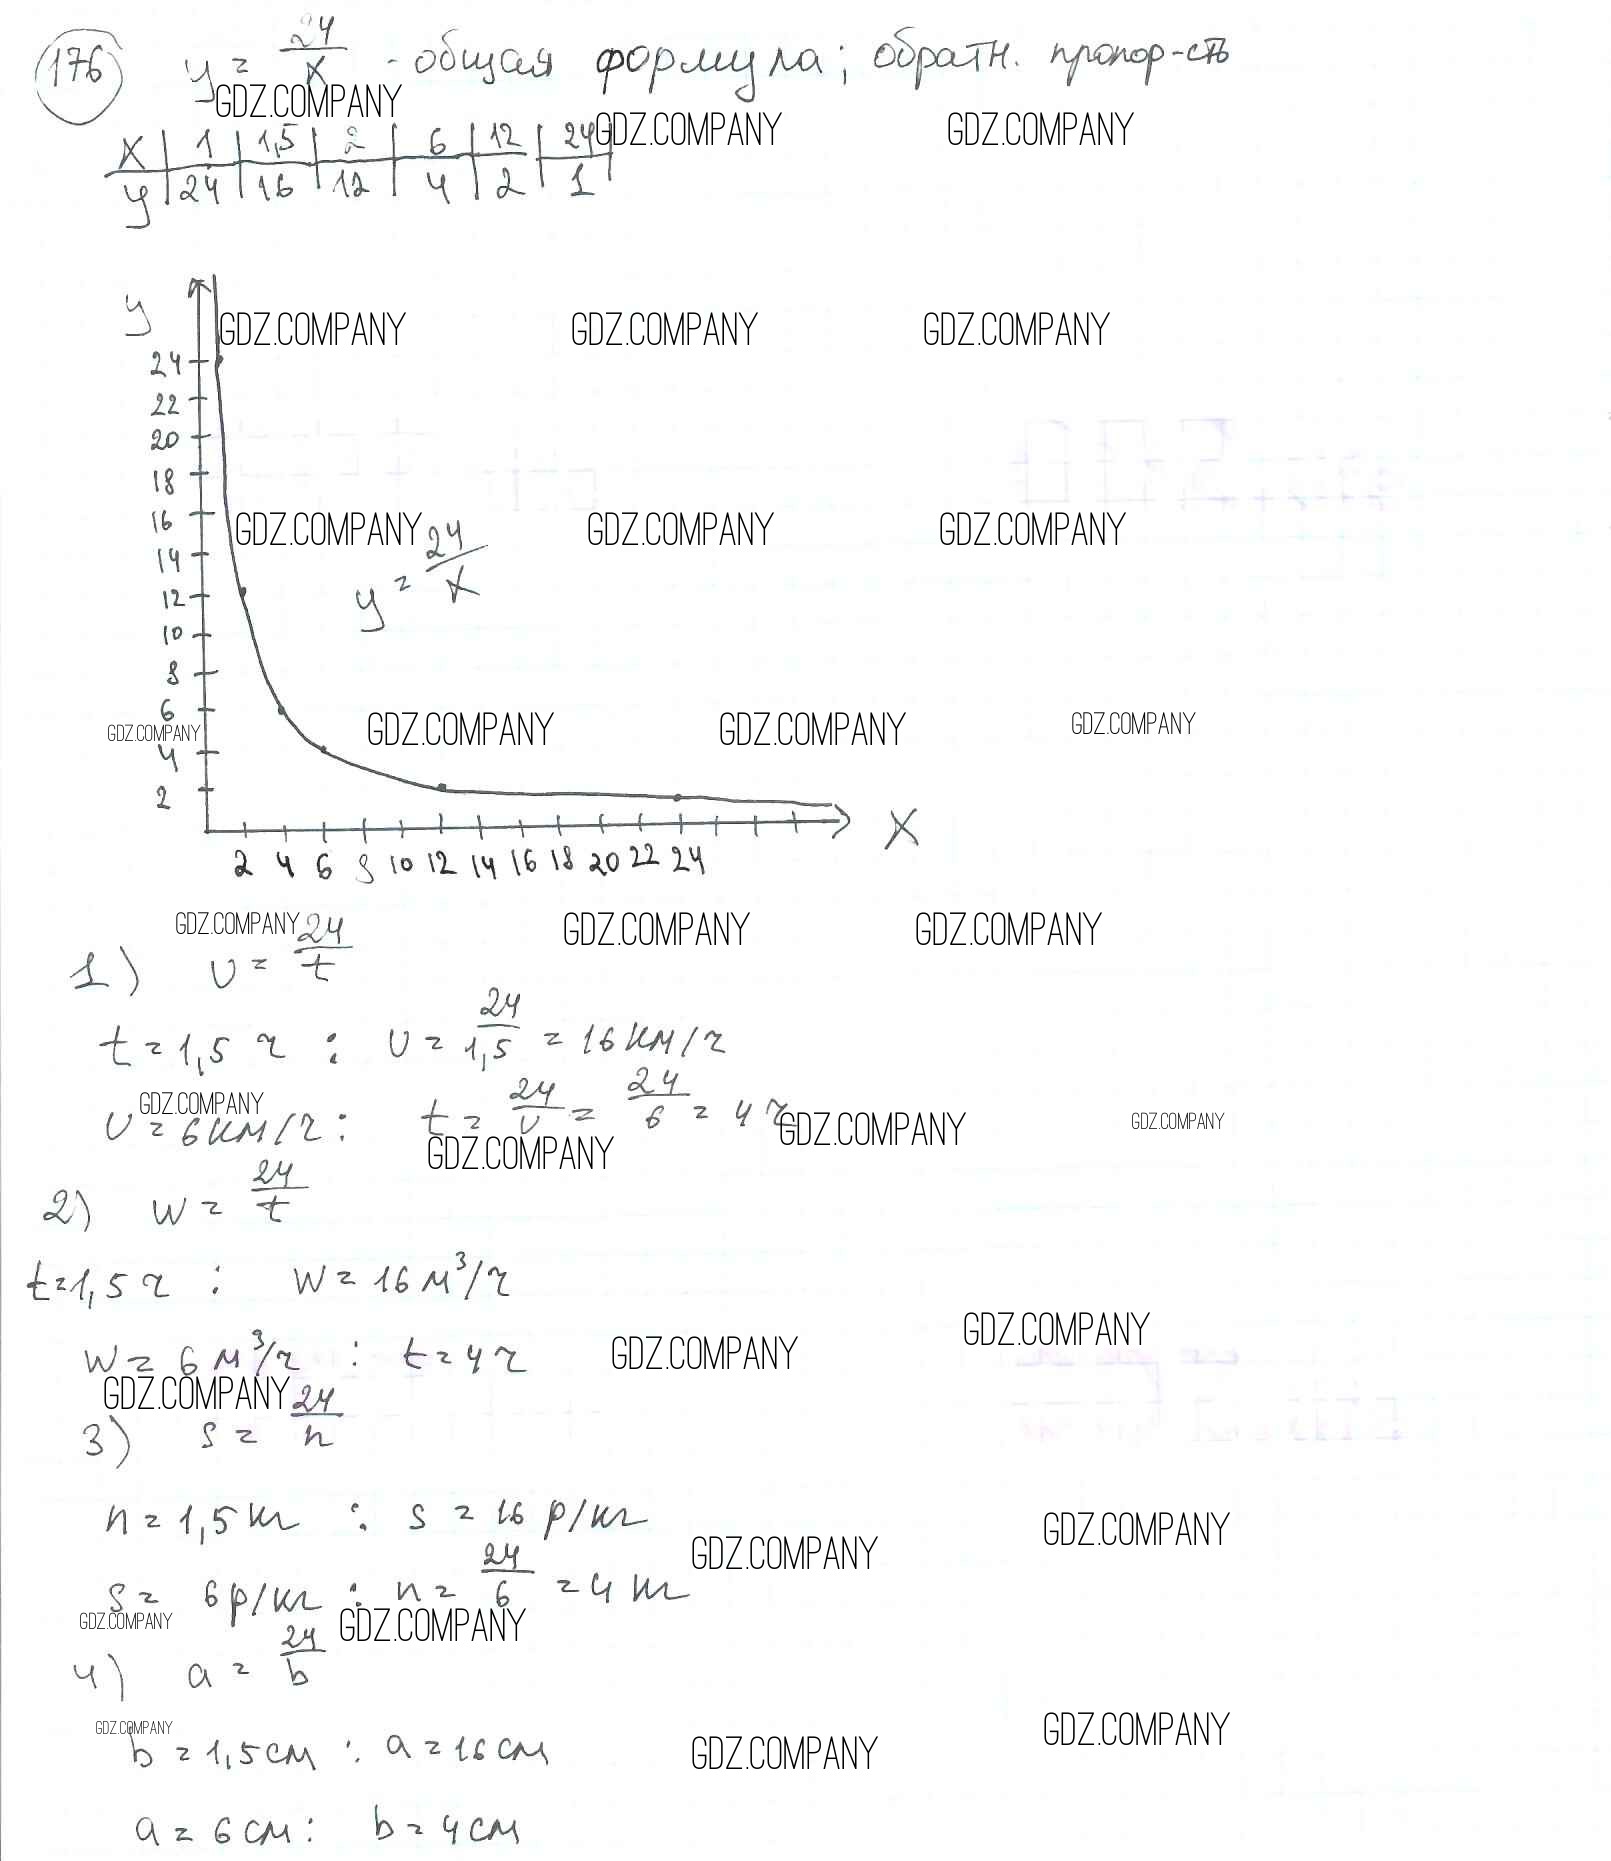 176 y = 24/x - общая формула; обратн. пропор-сть
GDZ.COMPANY
GDZ.COMPANY GDZ.COMPANY
x | 1 | 1,5 | 2 | 6 | 12 | 24
y | 24 | 16 | 12 | 4 | 2 | 1
y
GDZ.COMPANY GDZ.COMPANY GDZ.COMPANY
24
22
20
18
16
GDZ.COMPANY GDZ.COMPANY GDZ.COMPANY
y = 24/x
14
12
10
8
6
GDZ.COMPANY GDZ.COMPANY GDZ.COMPANY GDZ.COMPANY
4
2
x
2 4 6 8 10 12 14 16 18 20 22 24
GDZ.COMPANY GDZ.COMPANY GDZ.COMPANY
1) υ = 24/t
t = 1,5 ч : υ = 24/1,5 = 16 км/ч
GDZ.COMPANY
υ = 6 км/ч : t = 24/υ = 24/6 = 4 ч
GDZ.COMPANY GDZ.COMPANY
GDZ.COMPANY
2) w = 24/t
t = 1,5 ч : w = 16 м³/ч
GDZ.COMPANY
w = 6 м³/ч : t = 4 ч
GDZ.COMPANY
GDZ.COMPANY
3) s = 24/n
n = 1,5 кг : s = 16 р/кг
GDZ.COMPANY
GDZ.COMPANY
s = 6 р/кг : n = 24/6 = 4 кг
GDZ.COMPANY GDZ.COMPANY
4) a = 24/b
GDZ.COMPANY GDZ.COMPANY
b = 1,5 см : a = 16 см
GDZ.COMPANY
a = 6 см : b = 4 см